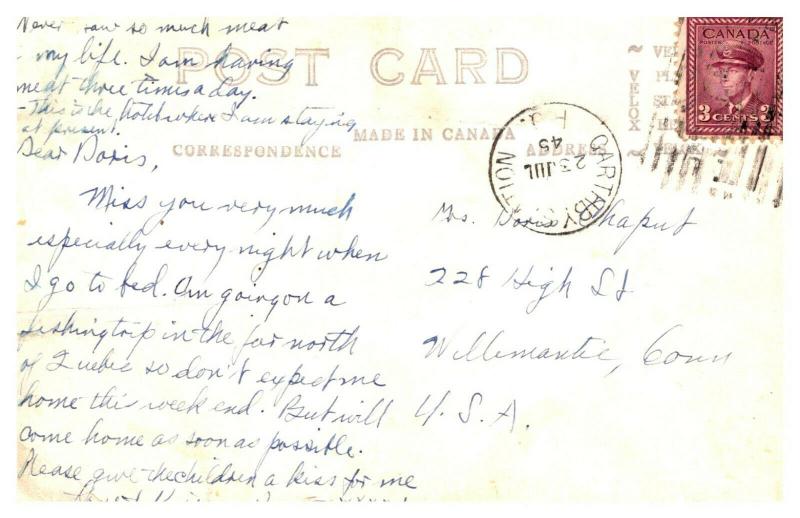 Never saw so much meat
my life. I am having
meat three times a day.
- This is the hotel where I am staying
at present.
POST CARD
MADE IN CANADA
CORRESPONDENCE
ADDRESS
VELOX
CANADA
POSTES POSTAGE
3 CENTS 3
CARTHBY STATION
23 JUL
45
Dear Doris,
Miss you very much
especially every night when
I go to bed. Am going on a
fishing trip in the far north
of Quebec so don't expect me
home this week end. But will
come home as soon as possible.
Please give the children a kiss for me
Mrs. Doris Chaput
228 High St
Willimantic, Conn
U.S.A.